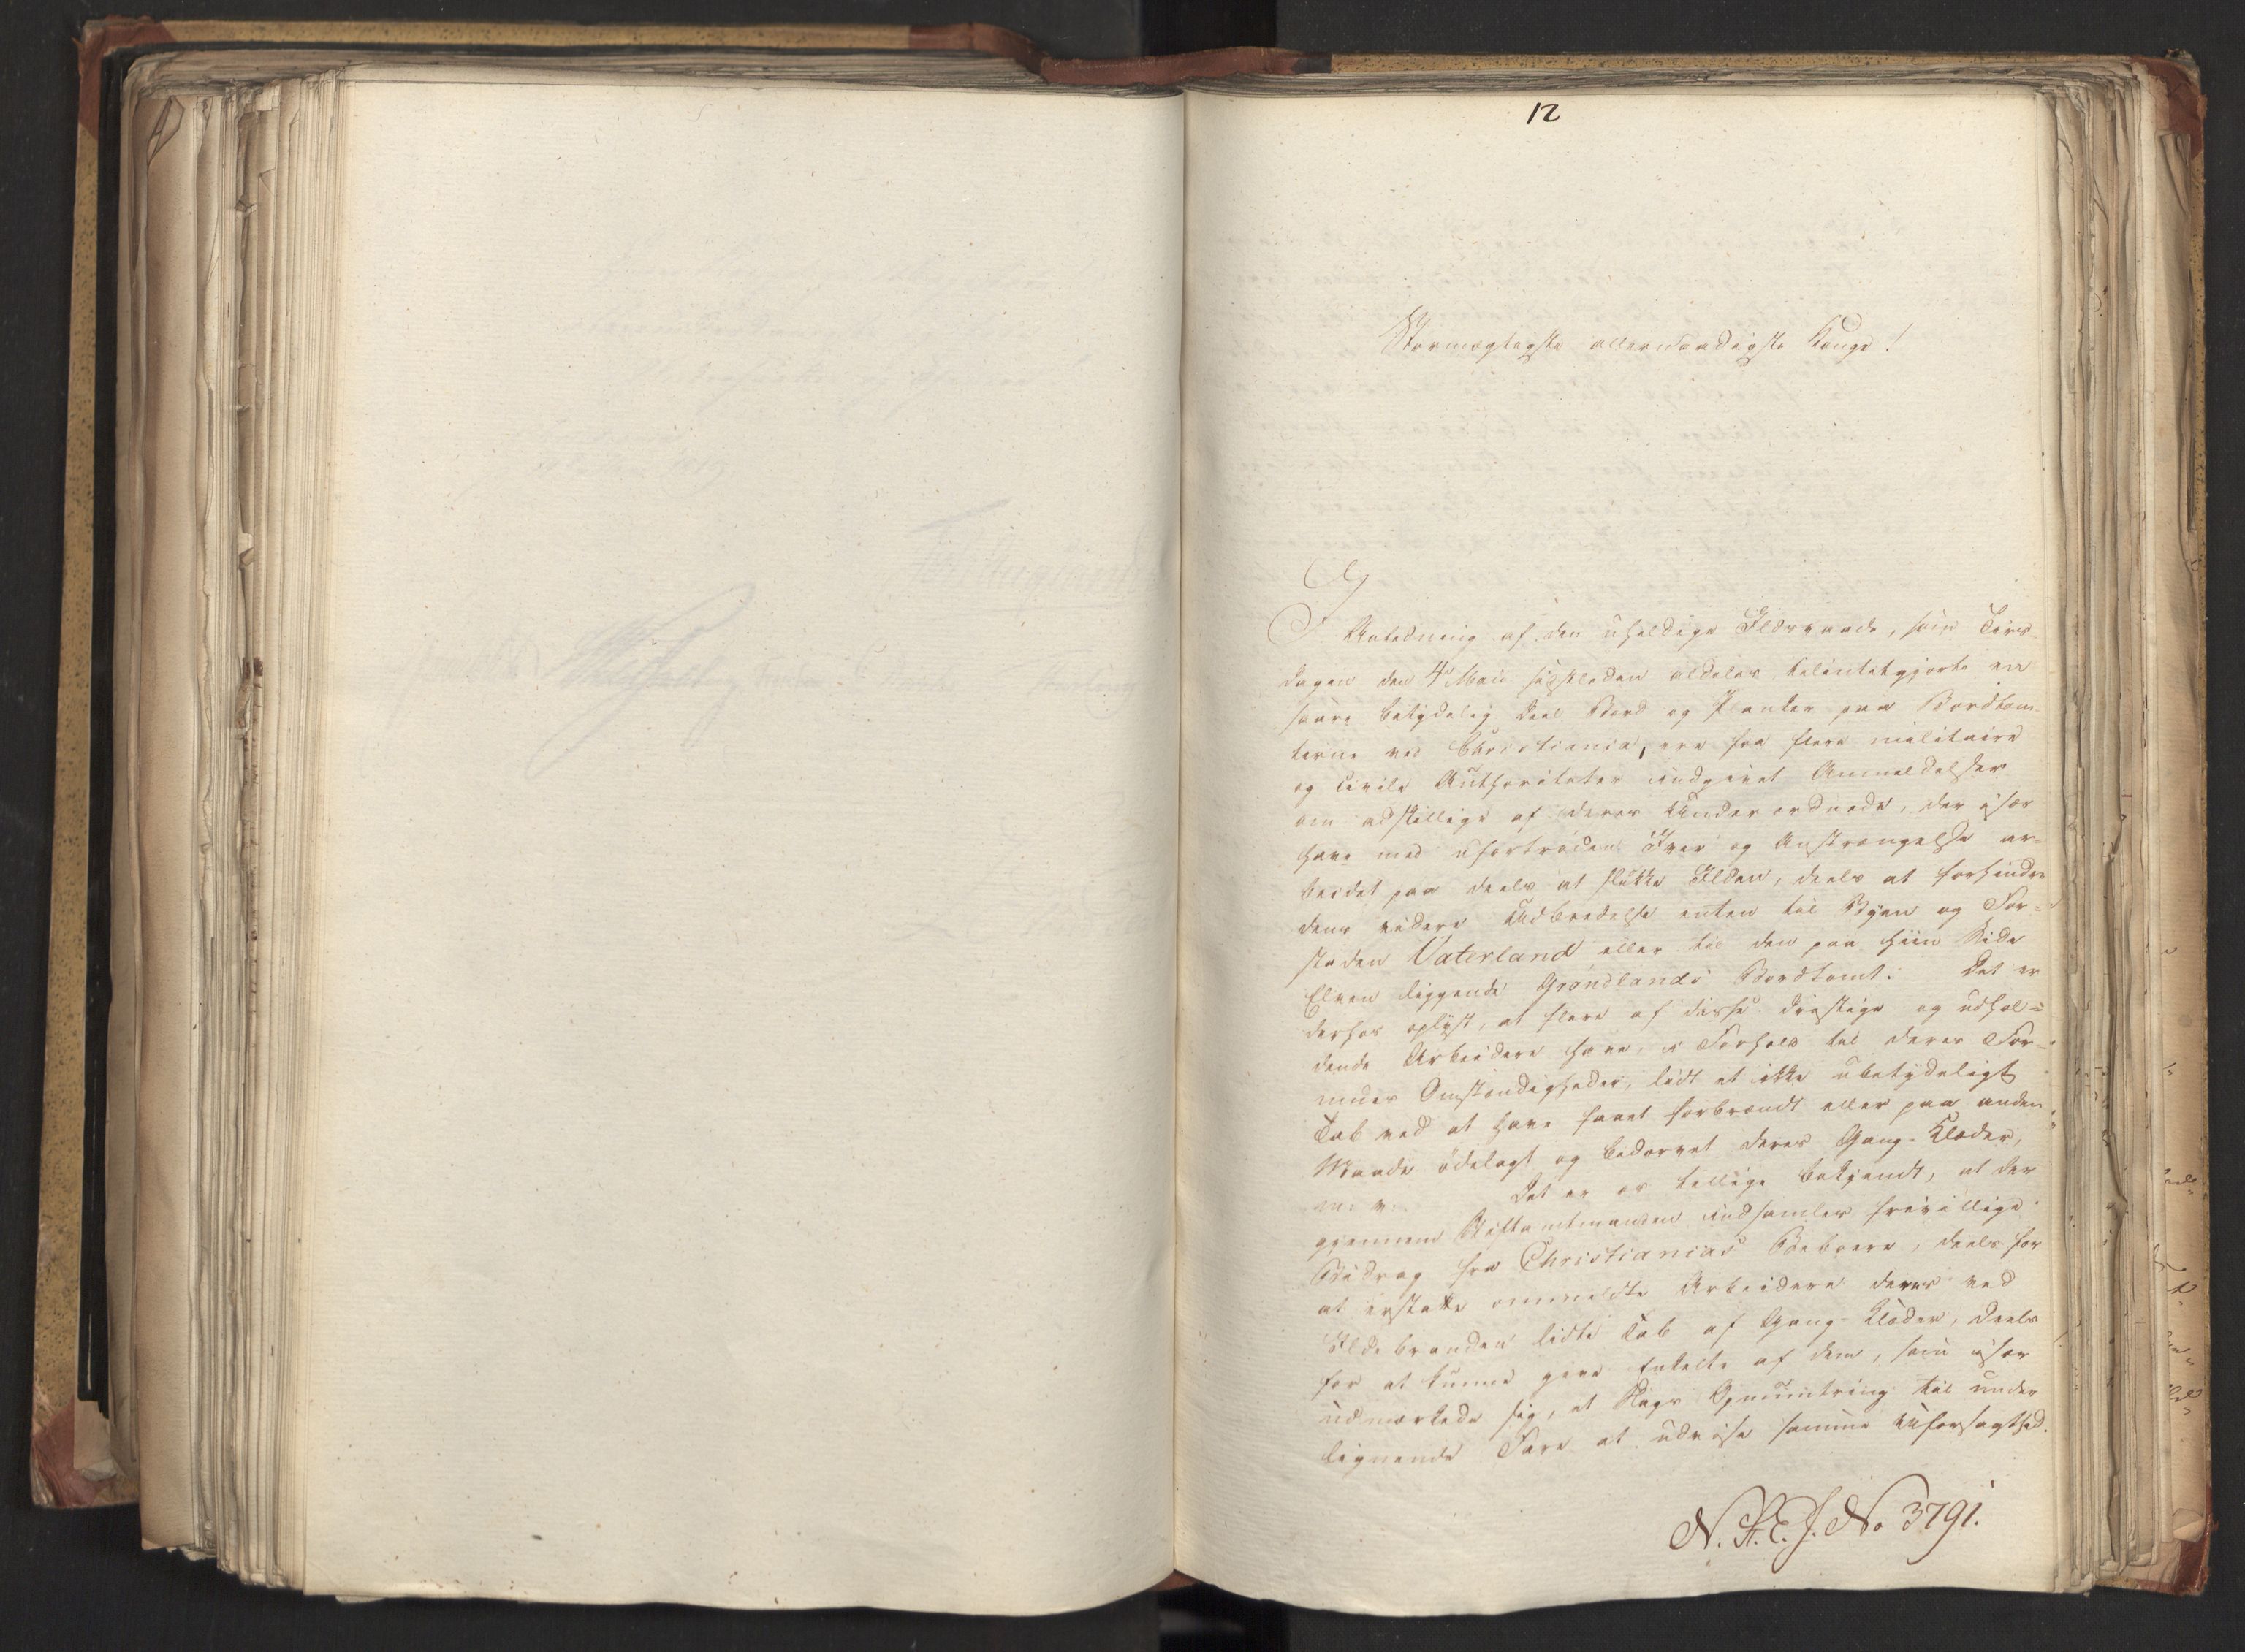 12
Stormægtigste allernaadigste Konge!
I
Anledning af den uheldige Ildsvaade, som Tirs-
dagen den 4de Maii sidstleden aldeles tilintetgjorde en
saare betydelig Deel Bord og Planker paa Bordtom-
terne ved Christiania, ere fra flere militaire
og civile Authoriteter indgivet Anmeldelser
om adskillige af deres Underordnede, der især
have med ufortrøden Iver og Anstrængelse ar-
beidet paa deels at slukke Ilden, deels at forhindre
dens videre Udbredelse enten til Byen og For-
staden Vaterland eller til den paa hiin Side
Elven liggende Grøndlands Bordtomt. Det er
derhos oplyst, at flere af disse dristige og udhol-
dende Arbeidere have, i Forhold til deres For-
mues Omstændigheder, lidt et ikke ubetydeligt
Tab ved at have faaet forbrændt eller paa anden
Maade ødelagt og bedærvet deres Gang-Klæder,
m: v: Det er os tillige bekjendt, at der
gjennem Stiftamtmanden indsamles frivillige
Bidrag fra Christianias Beboere, deels for
at erstatte ommeldte Arbeidere deres ved
Ildebranden lidte Tab af Gang-Klæder, deels
for at kunne give Enkelte af dem, som især
udmærkede sig, et Slags Opmuntring til under
lignende Fare at udvise samme Uforsagthed.
N. R. E. J. No 3791.